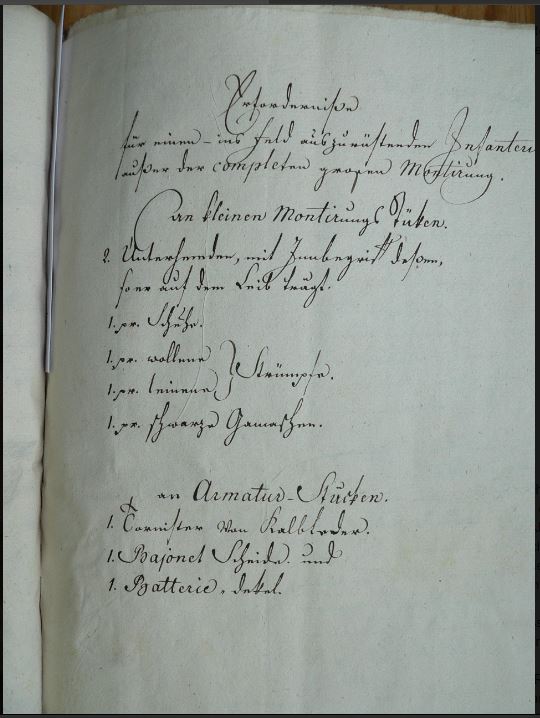 Erforderniße
für einen - ins Feld auszurüstenden Infanteri
außer der completen großen Montirung.
an kleinen Montirungs Stüken.
2. Unterhemden, mit Innbegriff deßen,
so er auf dem Leib trägt.
1. pr. Schuhe.
1. pr. wollene } Strümpfe.
1. pr. leinene
1. pr. schwarze Gamaschen.
an Armatur-Stücken.
1. Tornister von Kalbleder.
1. Bajonet Scheide. und
1. Batterie-dekel.